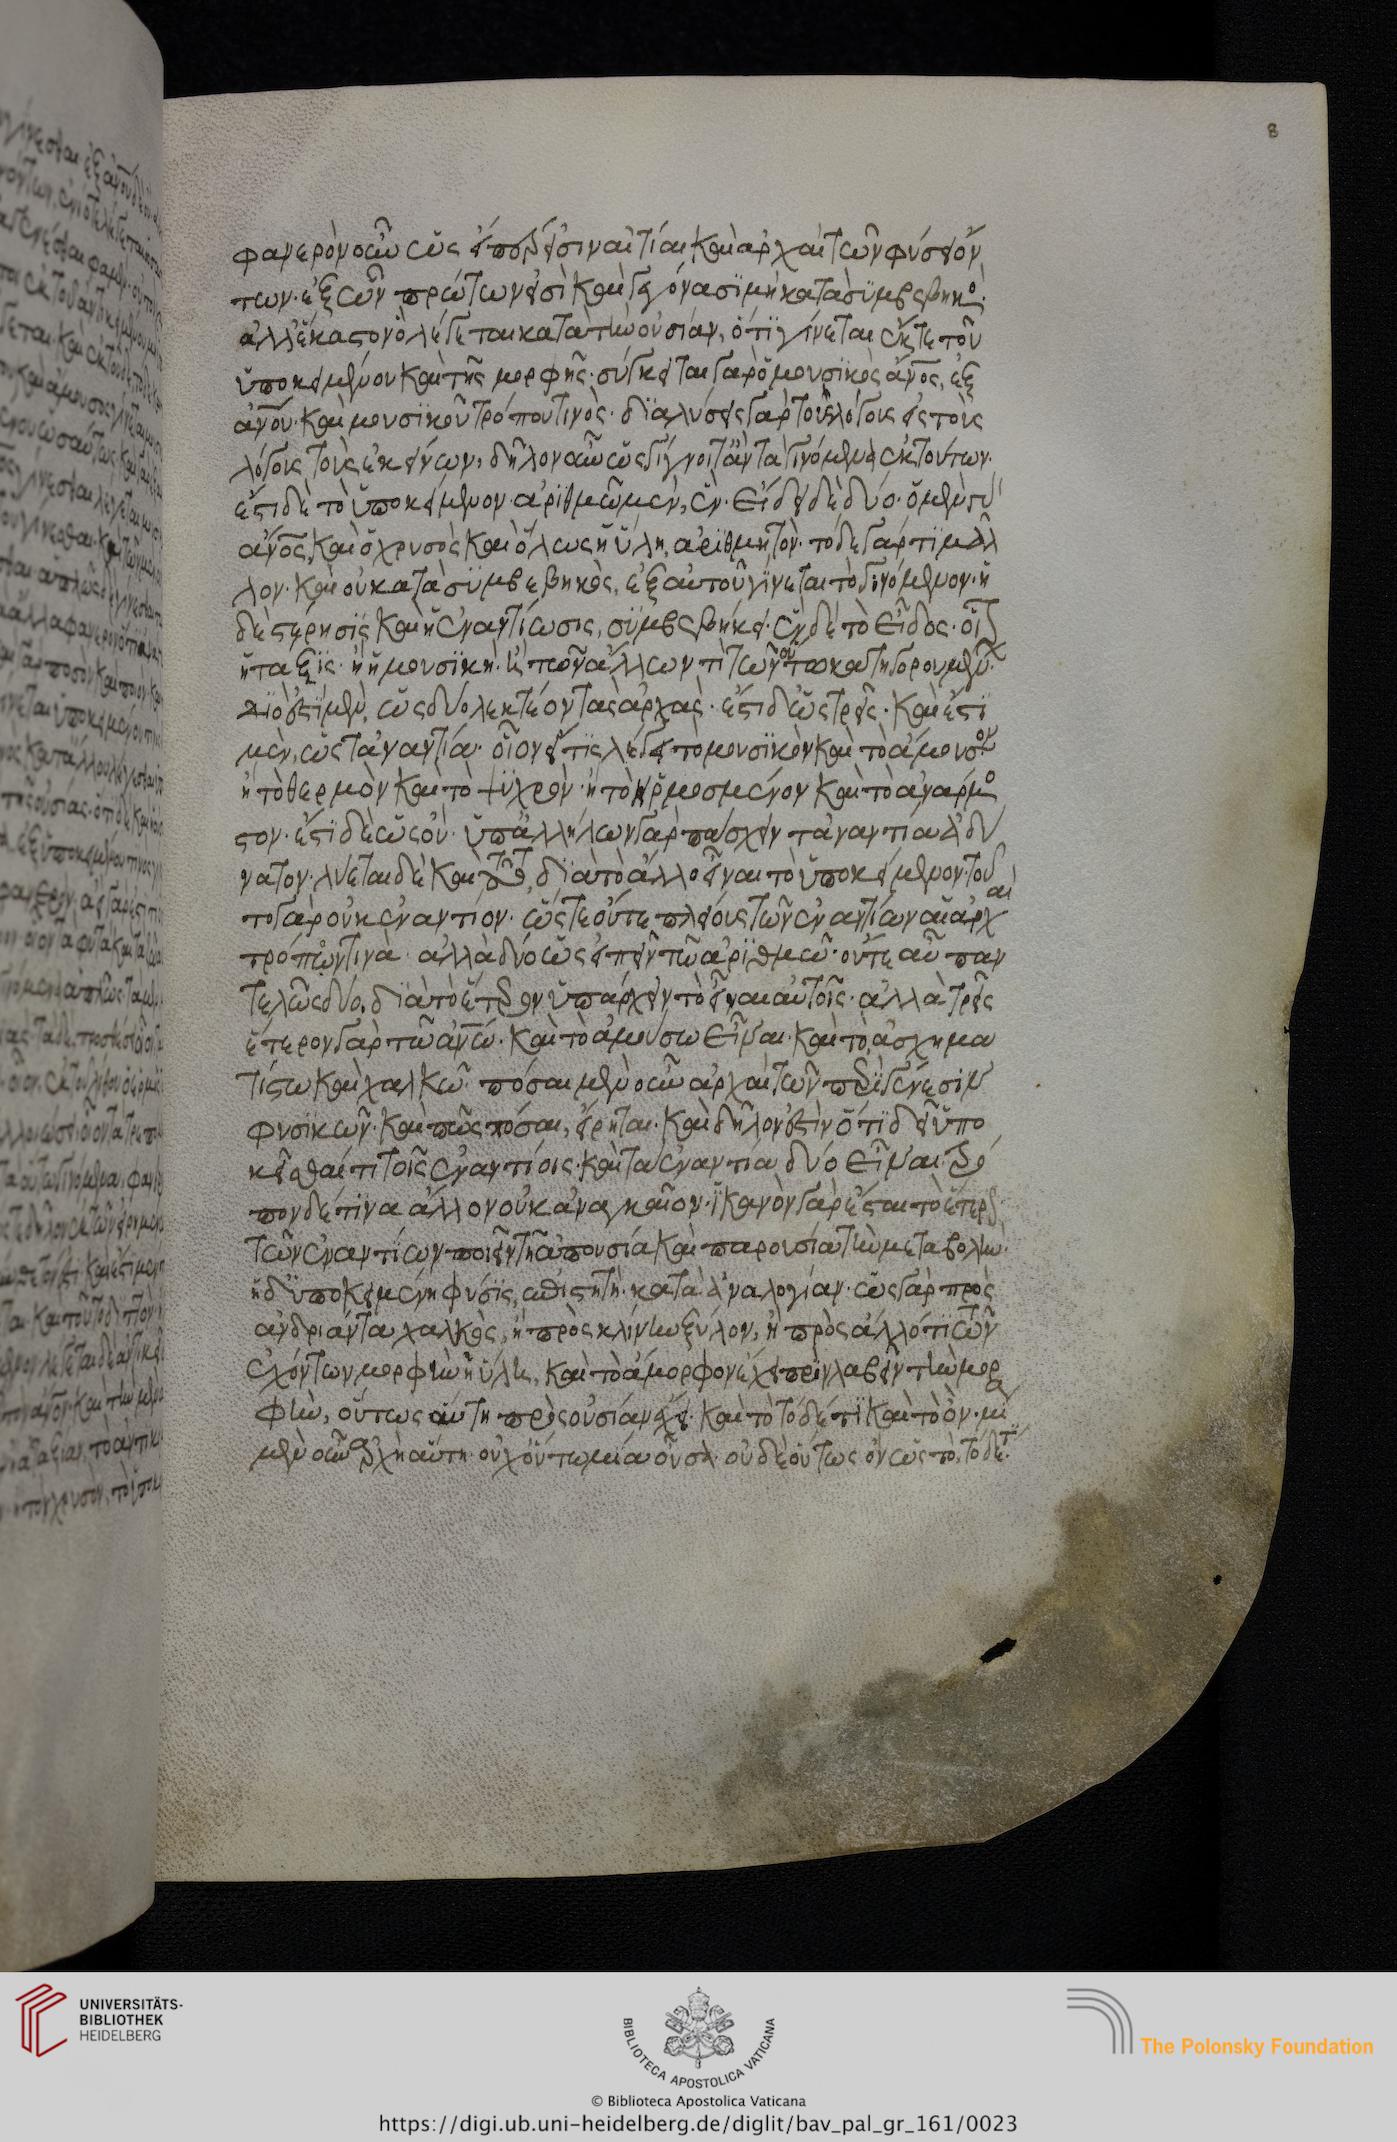 φανερὸν οὖν ὡς εἴπερ εἰσὶν αἰτίαι καὶ ἀρχαὶ τῶν φύσει ὄν
των· ἐξ ὧν πρώτων εἰσὶ καὶ γεγόνασϊ μὴ κατὰ συμβεβηκὸς·
ἀλλ' ἕκαστον ὃ λέγεται κατὰ τὴν οὐσίαν, ὅτι γίνεται ἔκ τε τοῦ
ὑποκειμένου καὶ τῆς μορφῆς· σύγκειται γὰρ ὁ μουσϊκὸς ἄνος, ἐξ
ἀνου· καὶ μουσϊκοῦ τρόπον τινὸς· διαλύσεις γὰρ τοὺς λόγους εἰς τοὺς
λόγους τοὺς ἐκείνων, δῆλον οὖν ὡς γίγνοιτ' ἂν τὰ γινόμενα ἐκ τούτων.
ἔστι δὲ τὸ ὑποκείμενον· ἀριθμῶ μὲν, ἕν· εἴδει δὲ δύο· ὁ μὲν γὰρ
ἄνος, καὶ ὁ χρυσὸς καὶ ὅλως ἡ ὕλη, ἀριθμητὸν· τόδε γάρ τι μᾶλ
λον· καὶ οὐ κατὰ συμβεβηκὸς, ἐξ αὐτοῦ γίνεται τὸ γινόμενον· ἡ
δὲ στέρησϊς καὶ ἡ ἐναντίωσις, συμβεβηκός· ἓν δὲ τὸ εἶδος· οἷον
ἡ τάξϊς· ἢ ἡ μουσϊκὴ· ἢ τῶν ἄλλων τι τῶν οὕτω κατηγορουμένων
διὸ ἔστι μὲν, ὡς δύο λεκτέον τὰς ἀρχὰς· ἔστι δ' ὡς τρεῖς· καὶ ἔστι
μὲν, ὡς τἀναντία· οἷον εἴ τις λέγει τὸ μουσϊκὸν καὶ τὸ ἄμουσον
ἢ τὸ θερμὸν καὶ τὸ ψυχρὸν· ἢ τὸ ἡρμοσμένον καὶ τὸ ἀνάρμο
στον· ἔστι δὲ ὡς οὔ· ὑπ' ἀλλήλων γὰρ πάσχειν τἀναντία ἀδύ
νατον· λύεται δὲ καὶ τοῦτο, διὰ τὸ ἄλλο εἶναι τὸ ὑποκείμενον· τοῦ
το γὰρ οὐκ ἐναντίον· ὥστε οὔτε πλείους τῶν ἐναντίων αἱ ἀρχαὶ
τρόπον τινὰ· ἀλλὰ δύο ὡς εἰπεῖν τῶ ἀριθμῶ· οὔτε αὖ παν
τελῶς δύο, διὰ τὸ ἕτερον ὑπάρχειν τὸ εἶναι αὐτοῖς· ἀλλὰ τρεῖς
ἕτερον γὰρ τῶ ἀνω· καὶ τὸ ἀμούσω εἶναι· καὶ τὸ ἀσχημα
τίστω καὶ χαλκῶ· πόσαι μὲν οὖν ἀρχαὶ τῶν περὶ γένεσιν
φυσϊκῶν· καὶ πῶς πόσαι, εἴρηται· καὶ δῆλόν ἐστϊν ὅτι δεῖ ὑπο
κεῖσθαί τι τοῖς ἐναντίοις· καὶ τἀναντία δύο εἶναι· τρό
πον δέ τινα ἄλλον οὐκ ἀναγκαῖον· ἱκανὸν γὰρ ἔσται τὸ ἕτερον
τῶν ἐναντίων ποιεῖν τῆ ἀπουσία καὶ παρουσία τὴν μεταβολὴν·
ἡ δ' ὑποκειμένη φύσϊς, ἐπιστητὴ· κατὰ ἀναλογίαν· ὡς γὰρ πρὸς
ἀνδριάντα χαλκὸς, ἢ πρὸς κλίνην ξύλον, ἢ πρὸς ἄλλό τι τῶν
ἐχόντων μορφὴν ἡ ὕλη, καὶ τὸ ἄμορφον ἔχει πρὶν λαβεῖν τὴν μορ
φὴν, οὕτως αὕτη πρὸς οὐσίαν ἔχει· καὶ τὸ τόδέ τι καὶ τὸ ὂν· μία
μὲν οὖν ἀρχὴ αὕτη· οὐχ οὕτω μία οὖσα· οὐδὲ οὕτως ὂν ὡς τὸ, τόδέ τι
8
UNIVERSITÄTS-
BIBLIOTHEK
HEIDELBERG
BIBLIOTECA APOSTOLICA VATICANA
The Polonsky Foundation
© Biblioteca Apostolica Vaticana
https://digi.ub.uni-heidelberg.de/diglit/bav_pal_gr_161/0023